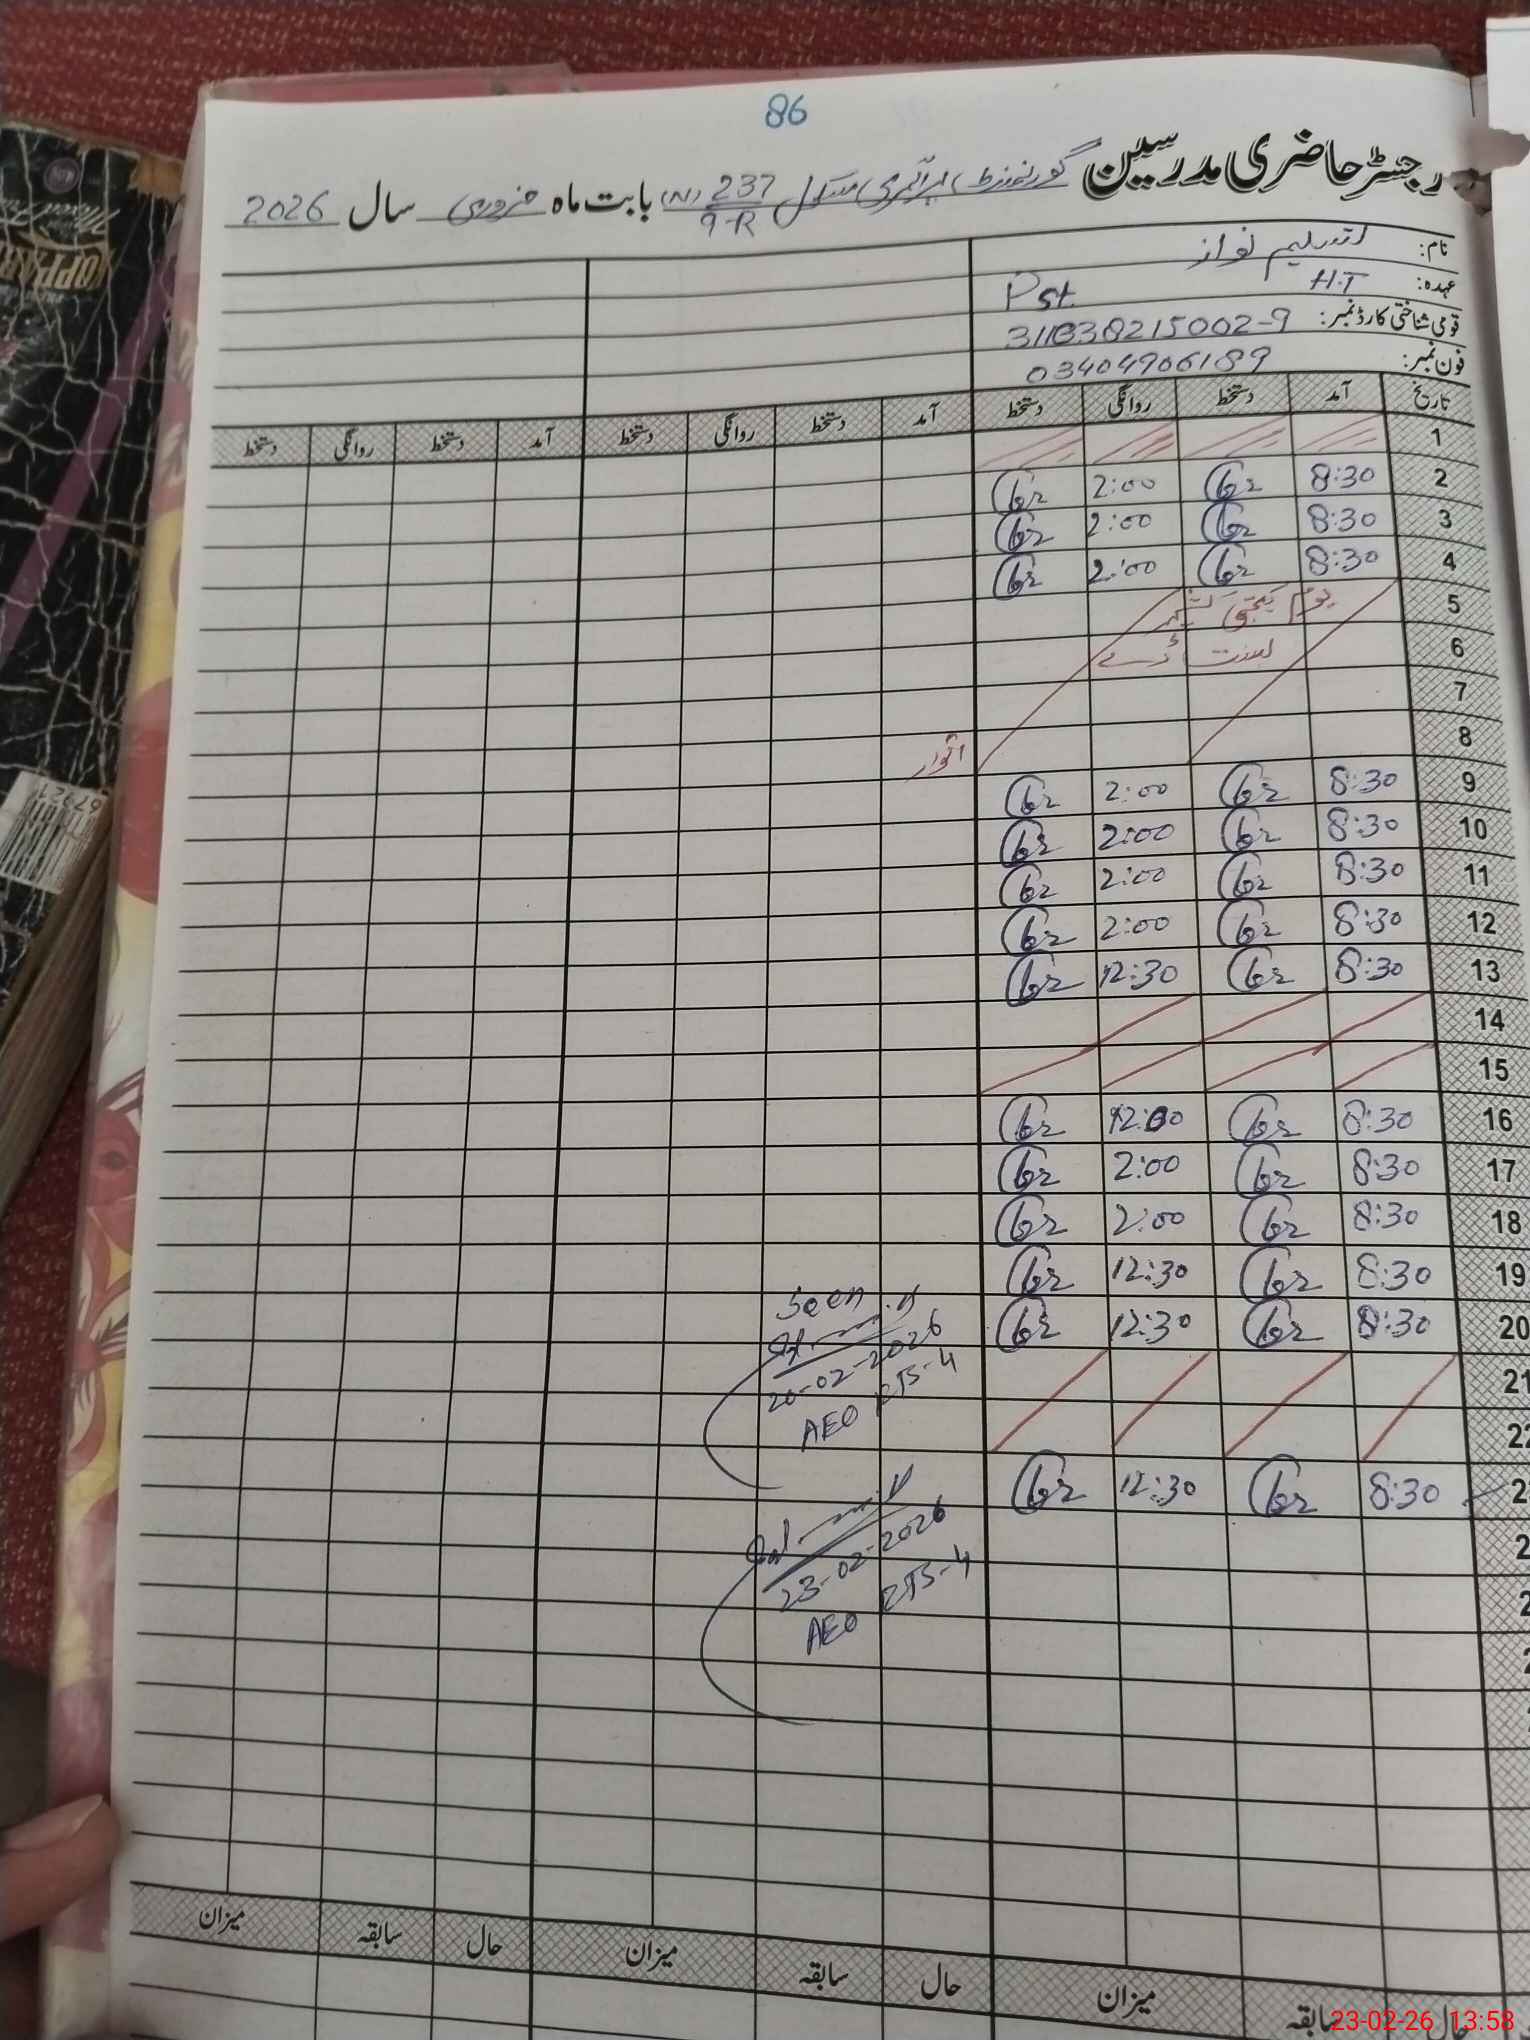 86
رجسٹر حاضری مدرسین گورنمنٹ پرائمری سکول (N) 237/9-R بابت ماہ فروری سال 2026
نام: تسلیم نواز
عہدہ: H.T Pst
قومی شناختی کارڈ نمبر:
فون نمبر: 03404906189
تاریخ آمد دستخط روانگی دستخط آمد دستخط روانگی دستخط آمد دستخط روانگی دستخط
1
2 8:30 2:00
3 8:30 2:00
4 8:30 2:00
5 یوم یکجہتی کشمیر
6 بسنت ڈے
7
8 اتوار
9 8:30 2:00
10 8:30 2:00
11 8:30 2:00
12 8:30 2:00
13 8:30 12:30
14
15
16 8:30
17 8:30 2:00
18 8:30 2:00
19 8:30 12:30
20 8:30 12:30
Seen
20-02-2026
AEO
21
22
8:30 12:30
23-02-2026
AEO
سابقہ میزان حال سابقہ میزان حال سابقہ میزان
23-02-26 13:58